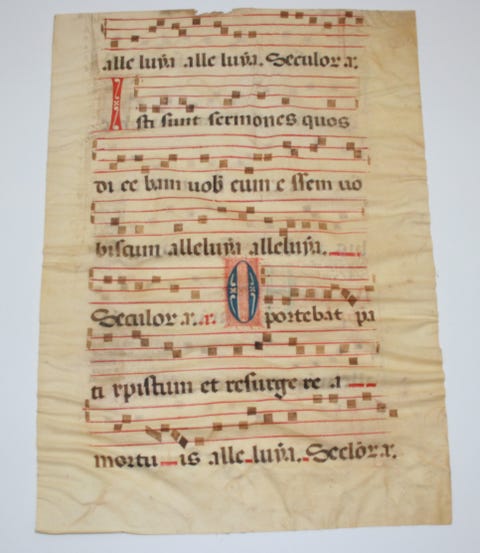 alle luya. alle luya. Seculor. a.
Isti sunt sermones quos
di ce bam uob cum e ssem uo
biscum alleluya alleluya.
Seculor. a. a. Oportebat pa
ti xpistum et resurge re a
mortu is alle luya. Seclor. a.